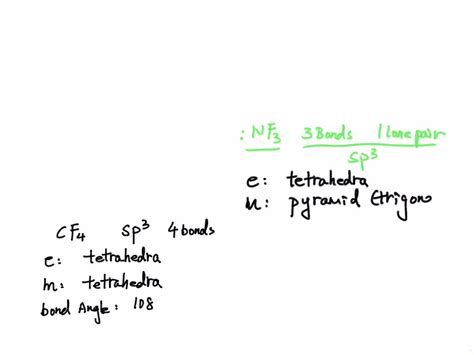 :NF3 3 Bonds 1 lone pair
sp3
e: tetrahedra
m: pyramid (trigono
CF4 sp3 4 bonds
e: tetrahedra
m: tetrahedra
bond Angle: 108